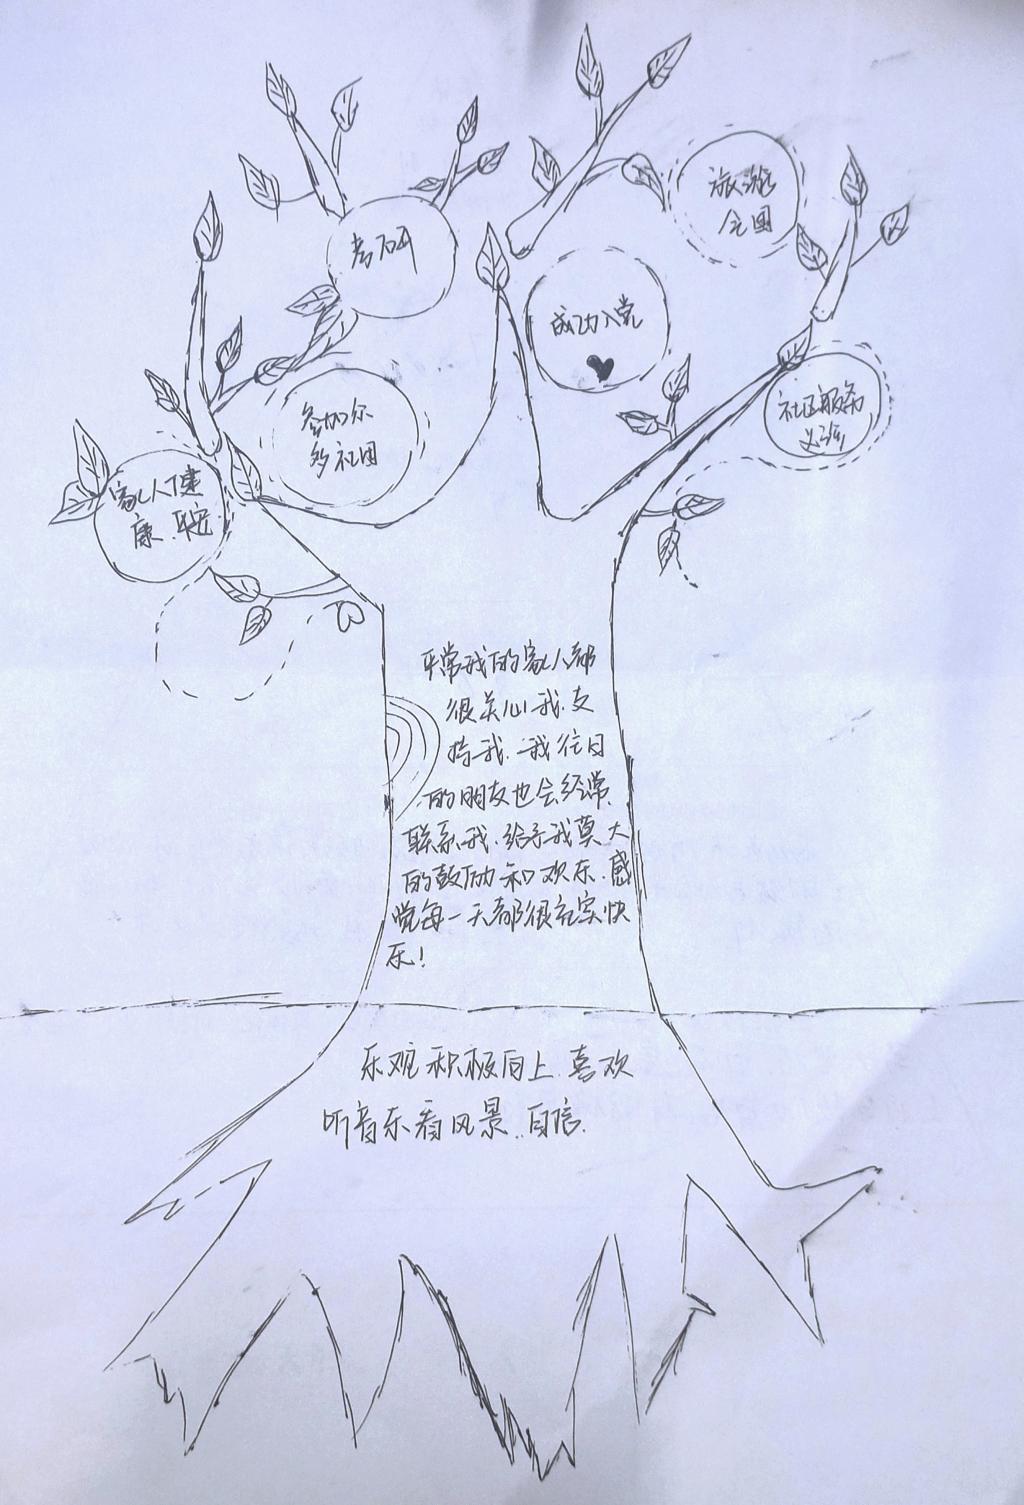 考研
旅游
全国
成功入党
参加尔
多社团
社区服务
家人健
康.平安
平常我的家人都
很关心我.支
持我.我往日
的朋友也会经常
联系我.给予我莫大
的鼓励和欢乐.感
觉每一天都很充实快
乐!
乐观积极向上.喜欢
听音乐看风景..自信.